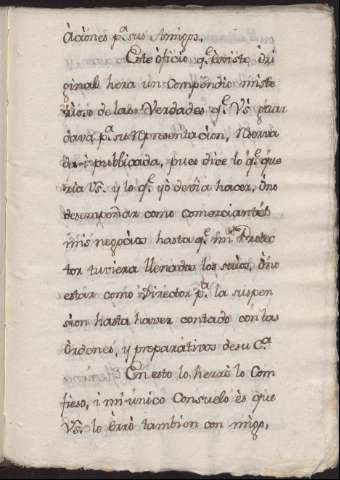 aciones p.ª sus Amigos.
Este oficio q.ᵉ existe ori
ginal hera un Compendio miste
rioso de las Verdades q.ᵉ Vs. guar
dava p.ª su Representacion, Reserva
da i publicada, pues dice lo q.ᵉ que
ria Vs. y lo q.ᵉ yo devia hacer, ô no
desempeñar como comerciante
mis negocios hasta q.ᵉ mi Protec
tor tuviera llenados los suios, ô no
estar como Director p.ª la suspen
sion hasta haver contado con las
Ordenes, y preparativos de su C.ª
En esto lo herrò lo Con
fieso, i mi unico Consuelo es que
Vs. lo errò tambien con migo,